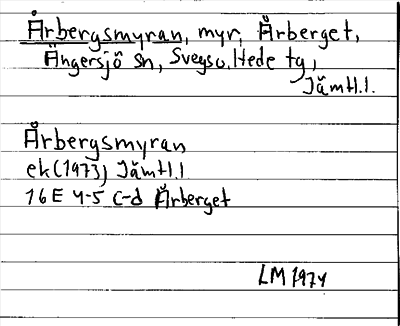 Årbergsmyran, myr, Årberget,
Ängersjö sn, Svegs o. Hede tg,
Jämtl.l.
Årbergsmyran
ek (1973) Jämtl.l
16E 4-5 c-d Årberget
LM 1974